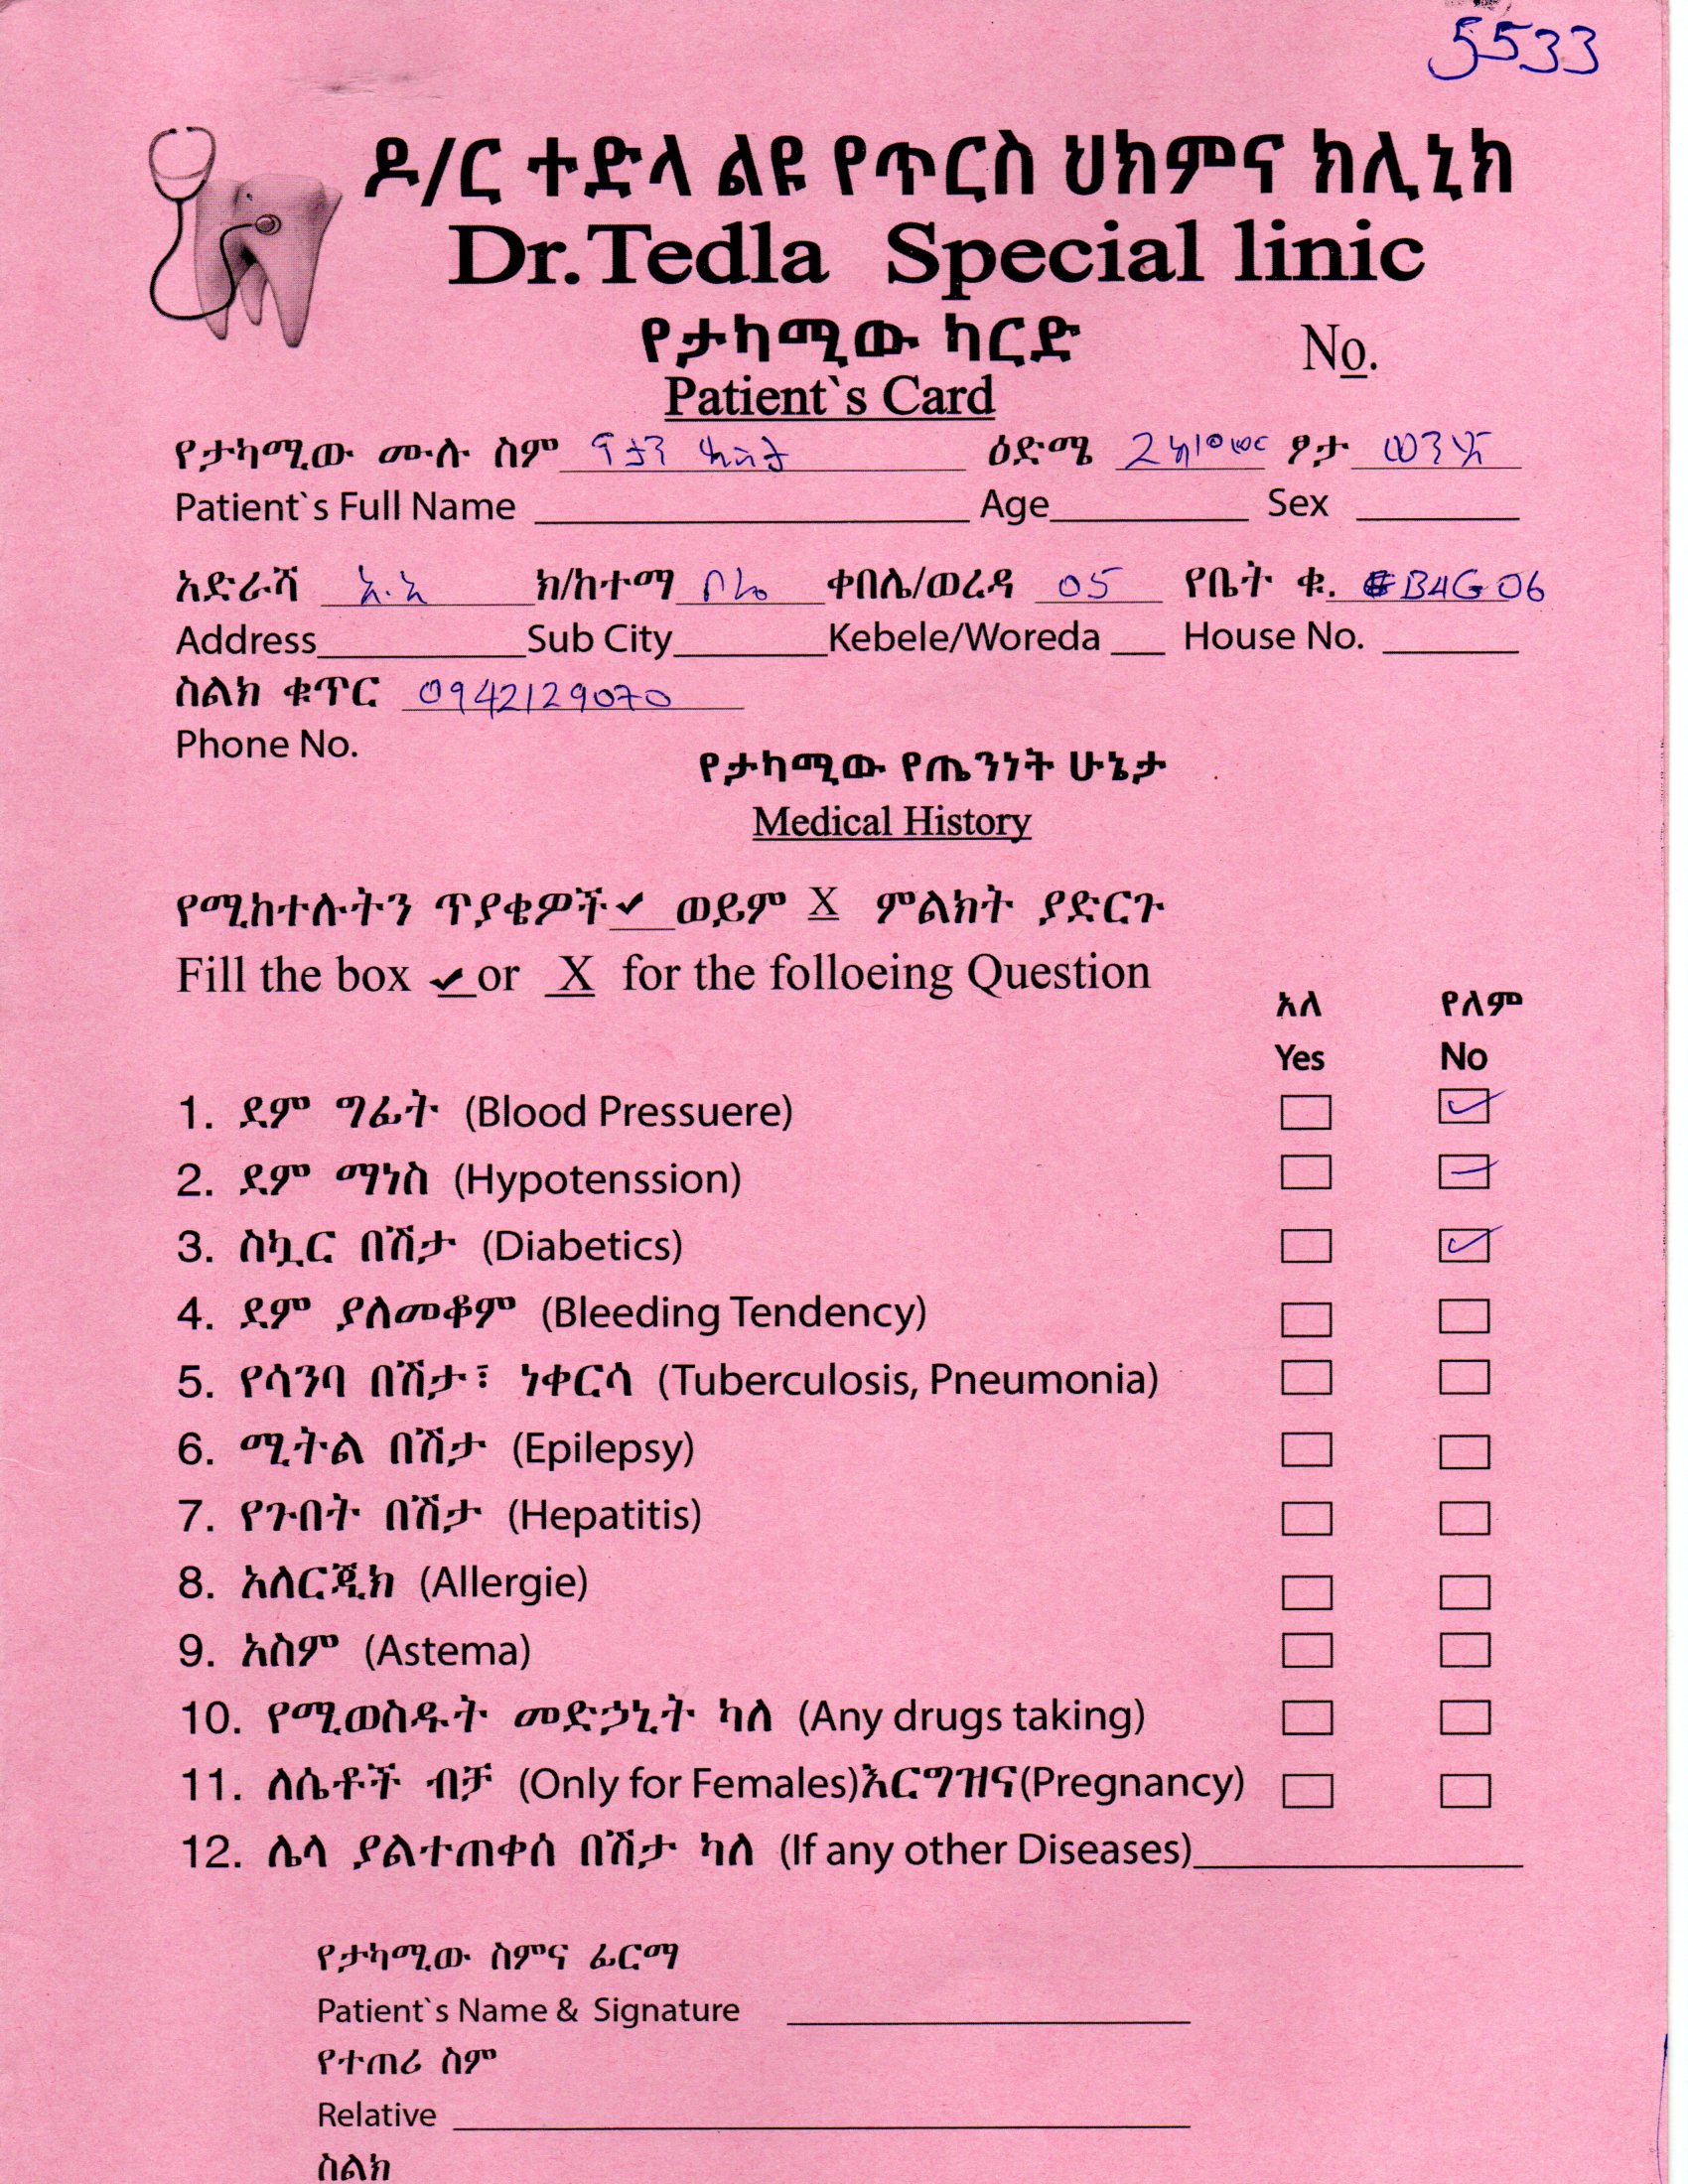 5533
ዶ/ር ተድላ ልዩ የጥርስ ህክምና ክሊኒክ
Dr. Tedla Special linic
የታካሚው ካርድ
No.
Patient`s Card
የታካሚው ሙሉ ስም ዕድሜ ፆታ ወንድ
Patient`s Full Name Age Sex
አድራሻ አ.አ ክ/ከተማ ቦሌ ቀበሌ/ወረዳ 05 የቤት ቁ. B4G06
Address Sub City Kebele/Woreda House No.
ስልክ ቁጥር 0942129070
Phone No.
የታካሚው የጤንነት ሁኔታ
Medical History
የሚከተሉትን ጥያቄዎች ✔ ወይም X ምልክት ያድርጉ
Fill the box ✔ or X for the folloeing Question
አለ የለም
Yes No
1. ደም ግፊት (Blood Pressuere)
2. ደም ማነስ (Hypotenssion)
3. ስኳር በሽታ (Diabetics)
4. ደም ያለመቆም (Bleeding Tendency)
5. የሳንባ በሽታ፣ ነቀርሳ (Tuberculosis, Pneumonia)
6. ሚትል በሽታ (Epilepsy)
7. የጉበት በሽታ (Hepatitis)
8. አለርጂክ (Allergie)
9. አስም (Astema)
10. የሚወስዱት መድኃኒት ካለ (Any drugs taking)
11. ለሴቶች ብቻ (Only for Females)እርግዝና(Pregnancy)
12. ሌላ ያልተጠቀሰ በሽታ ካለ (If any other Diseases)
የታካሚው ስምና ፊርማ
Patient`s Name & Signature
የተጠሪ ስም
Relative
ስልክ